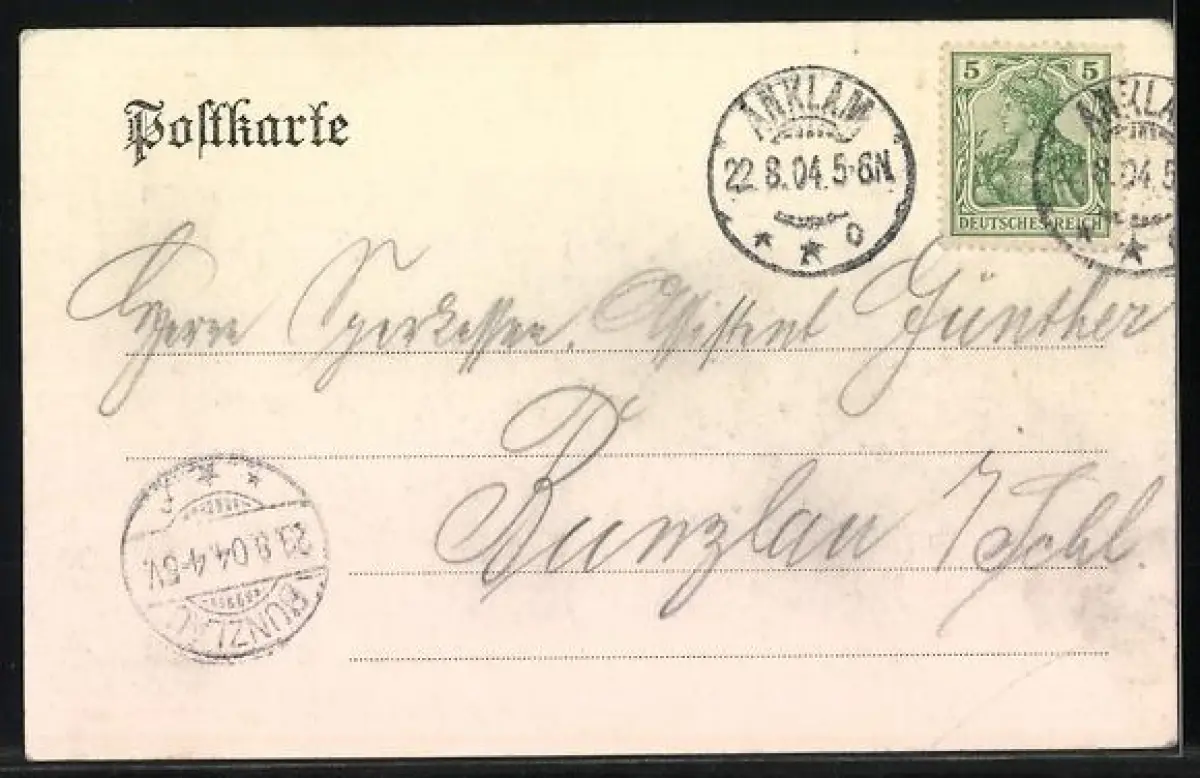 Postkarte
ANKLAM
22.8.04.5-6N
* * c
5 5
DEUTSCHES REICH
ANKLA
8.04.5
Herrn Sparkassen. Assistent Günther
Bunzlau / Schl.
BUNZLAU
23.8.04.4-5V.